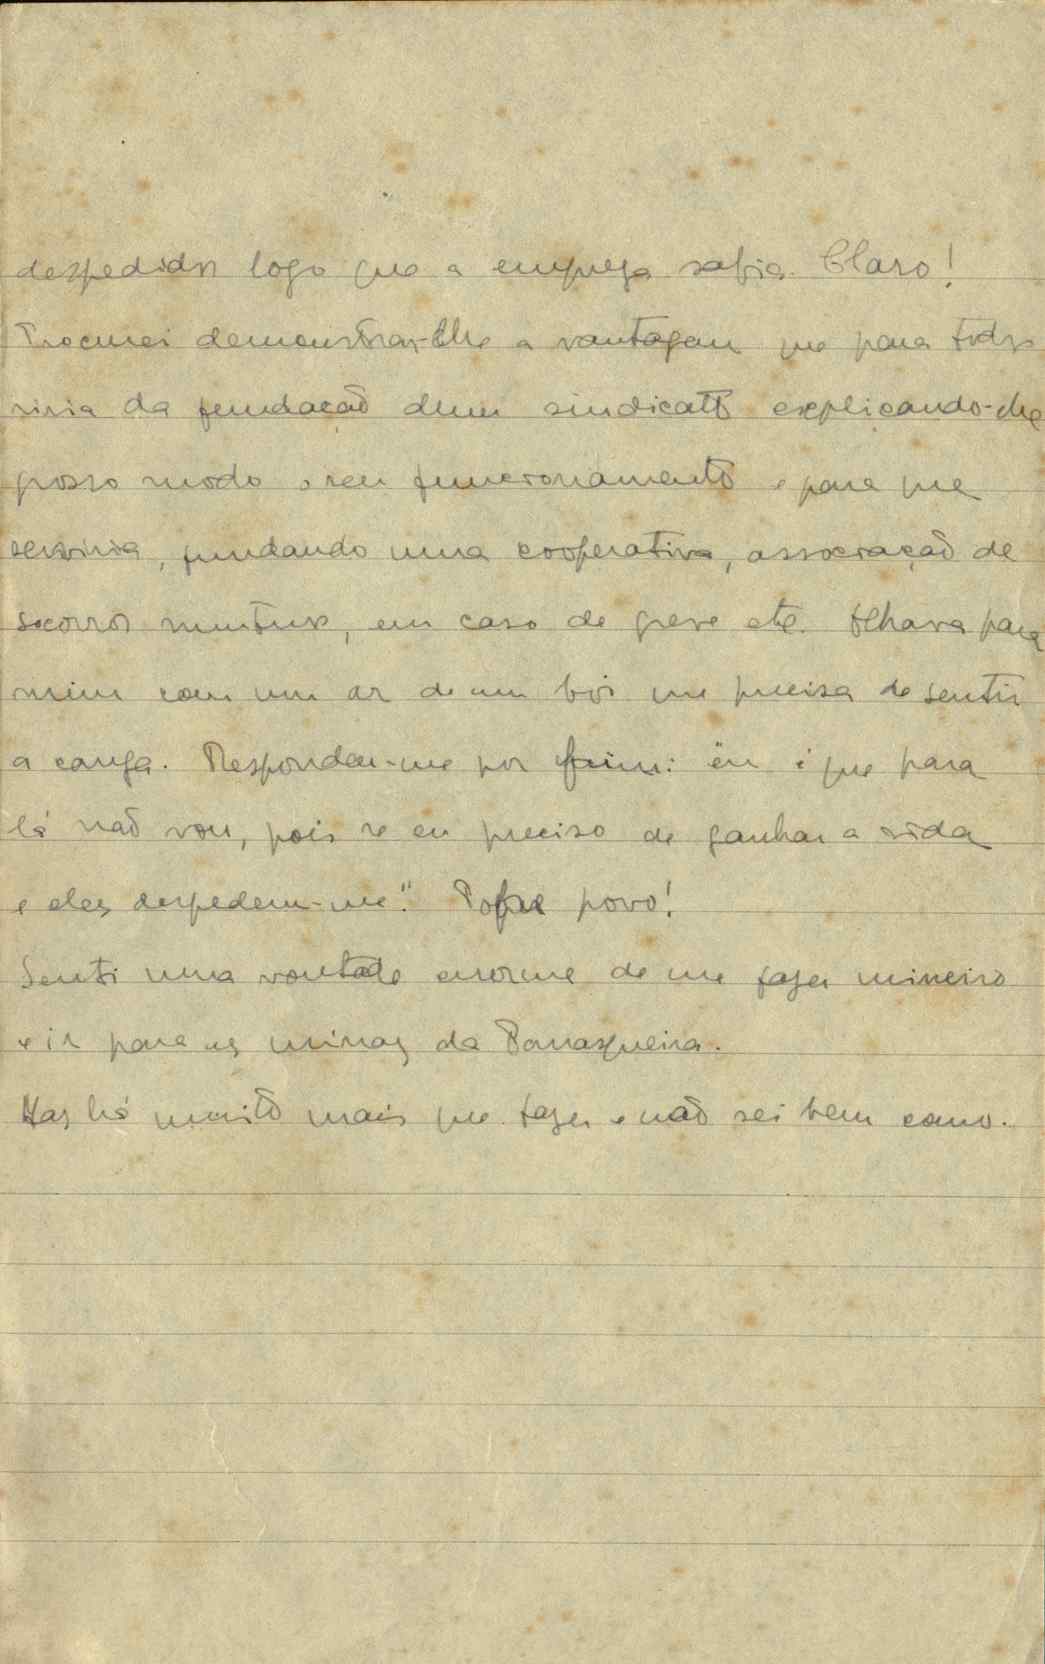 despedidos logo que a empresa sabia. Claro!
Procurei demonstrar-lhe a vantagem que para todos
viria da fundação dum sindicato explicando-lhe
grosso modo o seu funcionamento e para que
serviria, fundando uma cooperativa, associação de
socorros mutuos, em caso de greve etc. Olhava para
mim com um ar de um boi que precisa de sentir
a canga. Respondeu-me por fim: "eu é que para
lá não vou, pois se eu preciso de ganhar a vida
e eles despedem-me". Pobre povo!
Senti uma vontade enorme de me fazer mineiro
e ir para as minas da Panasqueira.
Mas há muito mais que fazer e não sei bem como.